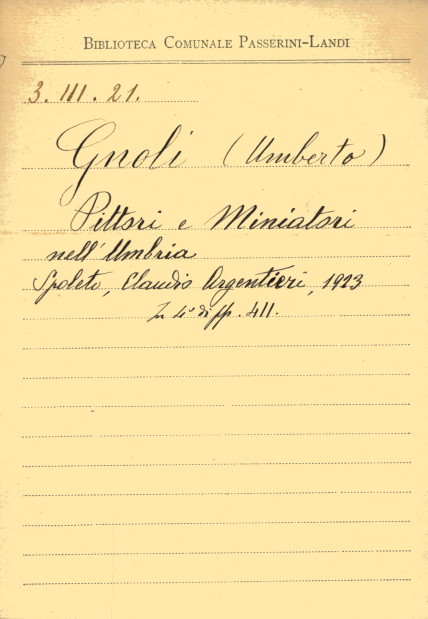 BIBLIOTECA COMUNALE PASSERINI-LANDI
3. III. 21.
Gnoli (Umberto)
Pittori e Miniatori
nell'Umbria
Spoleto, Claudio Argentieri, 1923
In 4° di pp. 411.